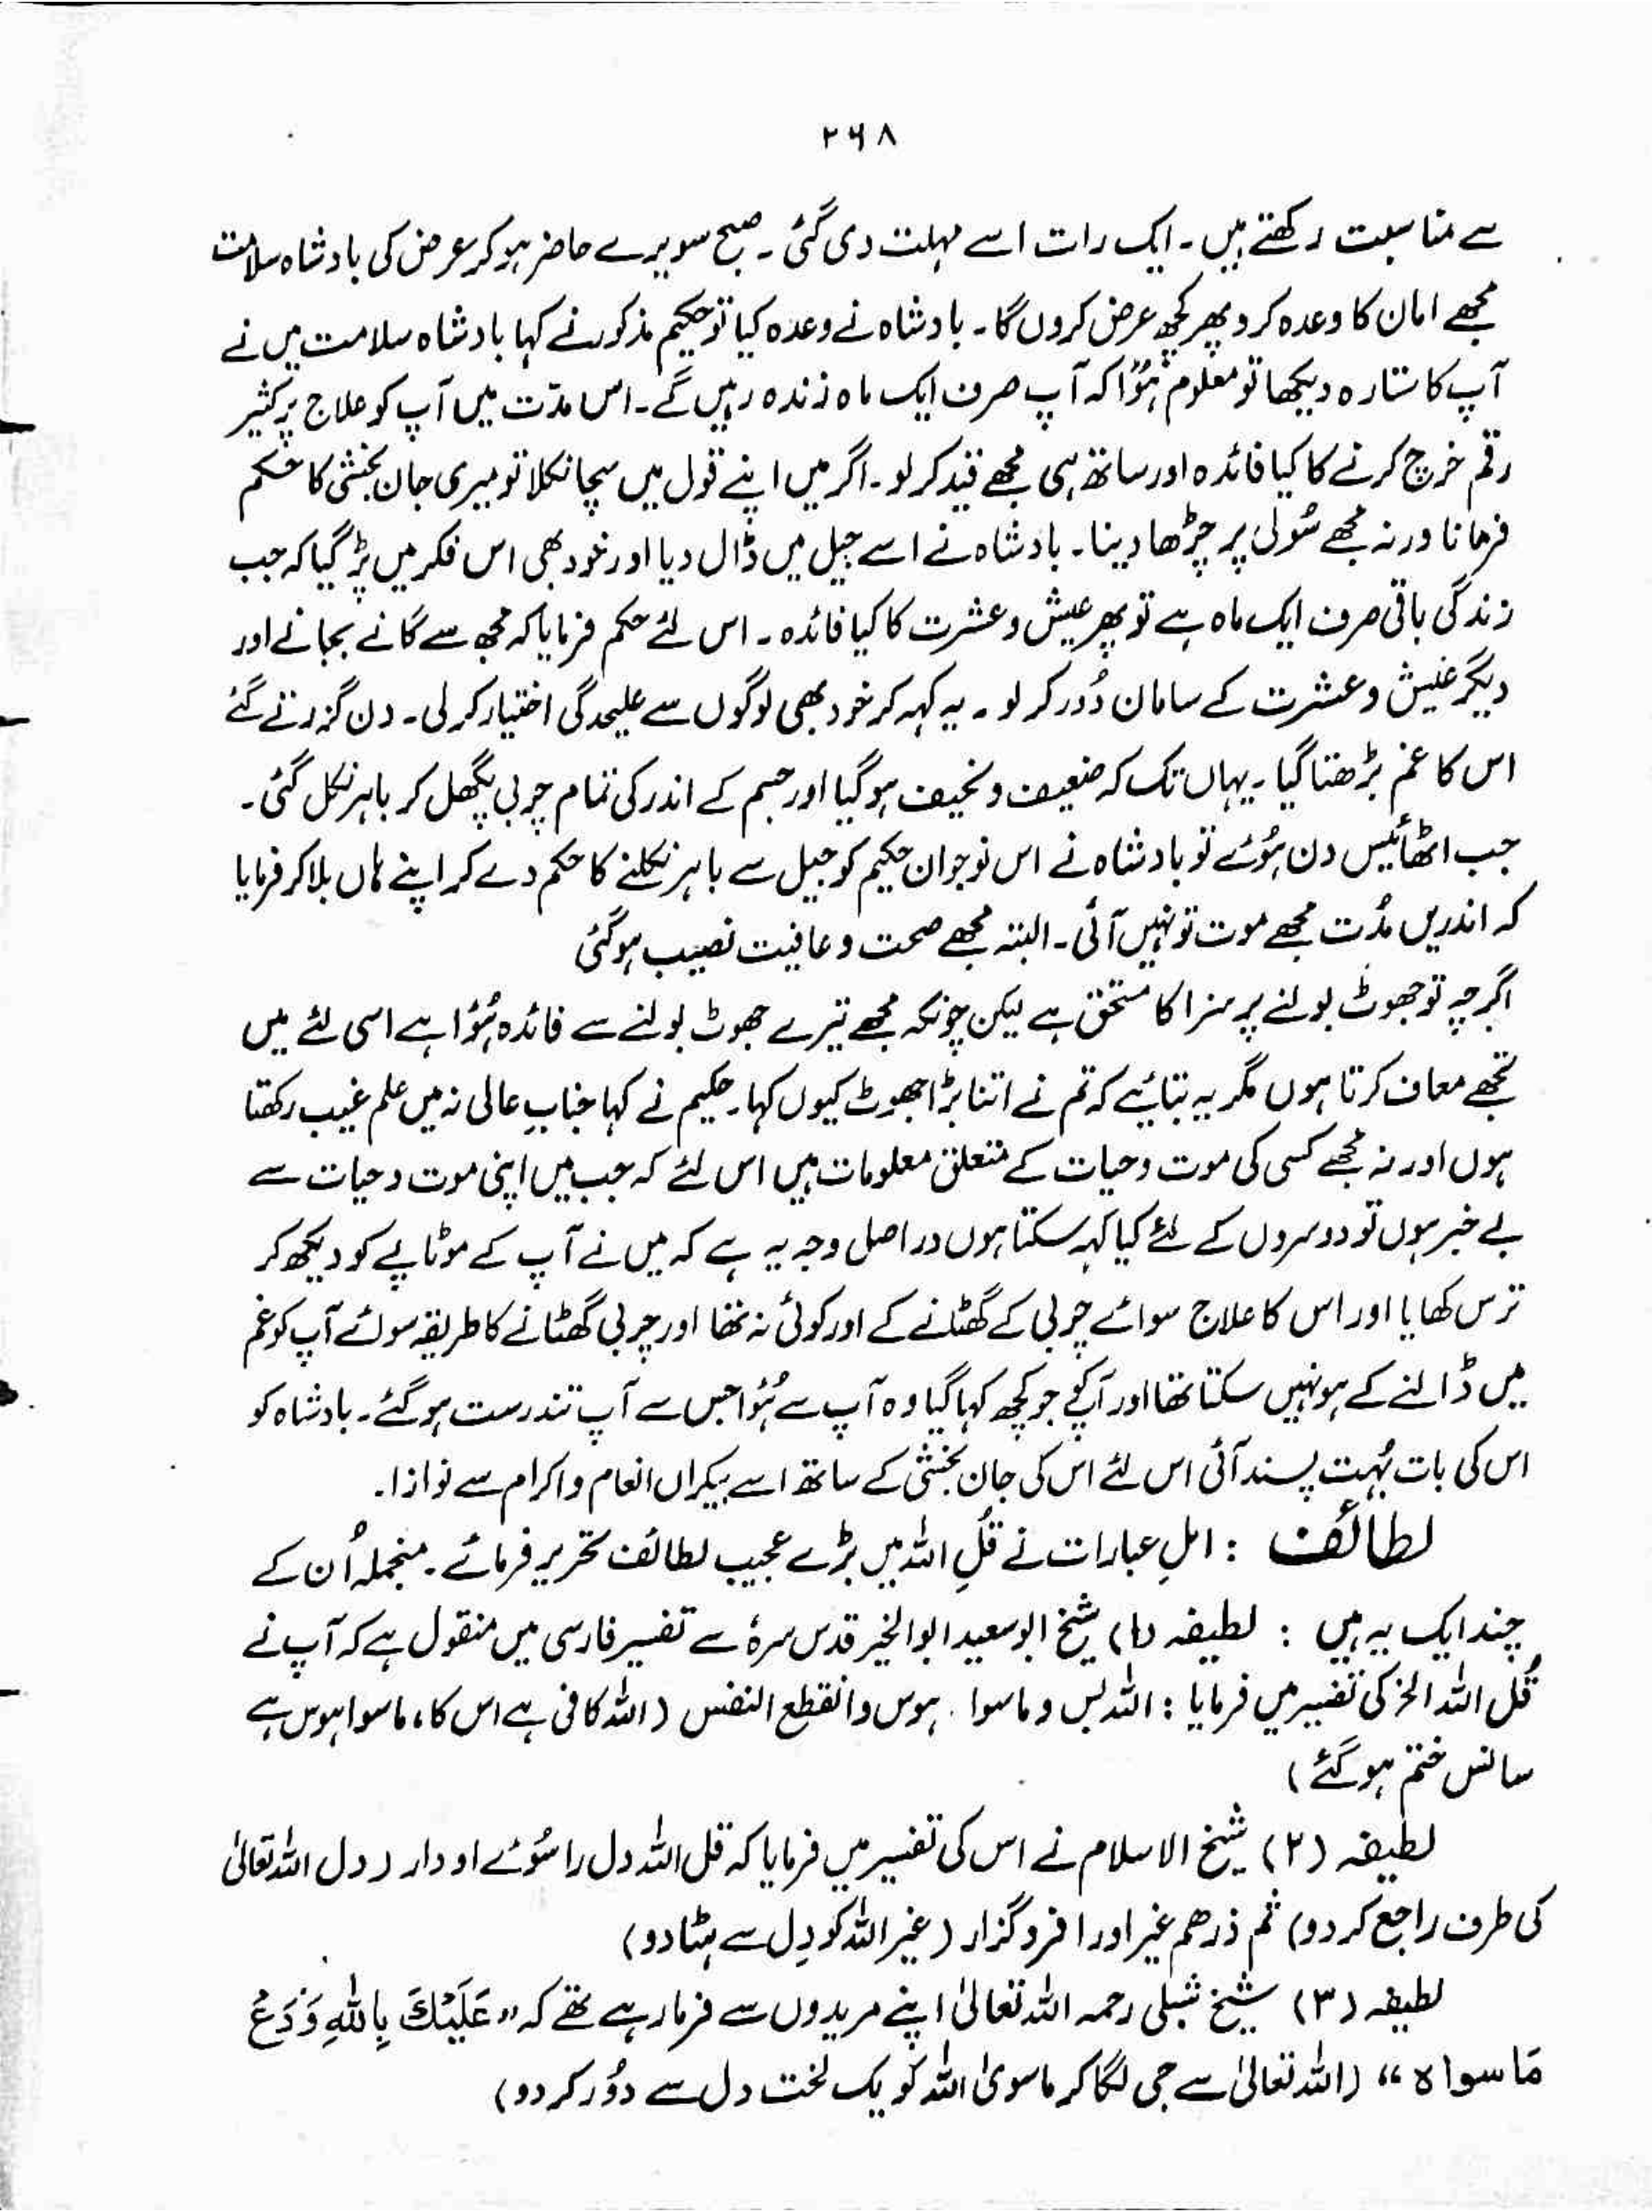 ۲۶۸
سے مناسبت رکھتے ہیں۔ ایک رات اسے مہلت دی گئی۔ صبح سویرے حاضر ہو کر عرض کی بادشاہ سلامت
مجھے امان کا وعدہ کرو پھر کچھ عرض کروں گا۔ بادشاہ نے وعدہ کیا تو حکیم مذکور نے کہا بادشاہ سلامت میں نے
آپ کا ستارہ دیکھا تو معلوم ہؤا کہ آپ صرف ایک ماہ زندہ رہیں گے۔ اس مدّت میں آپ کو علاج پر کثیر
رقم خرچ کرنے کا کیا فائدہ اور ساتھ ہی مجھے قید کر لو۔ اگر میں اپنے قول میں سچا نکلا تو میری جان بخشی کا حکم
فرمانا ورنہ مجھے سُولی پر چڑھا دینا۔ بادشاہ نے اسے جیل میں ڈال دیا اور خود بھی اس فکر میں پڑ گیا کہ جب
زندگی باقی صرف ایک ماہ ہے تو پھر عیش و عشرت کا کیا فائدہ۔ اس لئے حکم فرمایا کہ مجھ سے گانے بجانے اور
دیگر عیش و عشرت کے سامان دُور کر لو۔ یہ کہہ کر خود بھی لوگوں سے علیحدگی اختیار کر لی۔ دن گزرتے گئے
اس کا غم بڑھتا گیا۔ یہاں تک کہ ضعیف و نحیف ہو گیا اور جسم کے اندر کی تمام چربی پگھل کر باہر نکل گئی۔
جب اٹھائیس دن ہُوئے تو بادشاہ نے اس نوجوان حکیم کو جیل سے باہر نکلنے کا حکم دے کر اپنے ہاں بلا کر فرمایا
کہ اندریں مُدّت مجھے موت تو نہیں آئی۔ البتہ مجھے صحت و عافیت نصیب ہو گئی
اگرچہ تو جھوٹ بولنے پر سزا کا مستحق ہے لیکن چونکہ مجھے تیرے جھوٹ بولنے سے فائدہ ہُؤا ہے اسی لئے میں
تجھے معاف کرتا ہوں مگر یہ بتائیے کہ تم نے اتنا بڑا جھوٹ کیوں کہا۔ حکیم نے کہا جنابِ عالی نہ میں علم غیب رکھتا
ہوں اور نہ مجھے کسی کی موت و حیات کے متعلق معلومات ہیں اس لئے کہ جب میں اپنی موت و حیات سے
بے خبر ہوں تو دوسروں کے لئے کیا کہہ سکتا ہوں دراصل وجہ یہ ہے کہ میں نے آپ کے موٹاپے کو دیکھ کر
ترس کھایا اور اس کا علاج سوائے چربی کے گھٹانے کے اور کوئی نہ تھا اور چربی گھٹانے کا طریقہ سوائے آپ کو غم
میں ڈالنے کے ہو نہیں سکتا تھا اور آپکے جو کچھ کہا گیا وہ آپ سے ہُؤا جس سے آپ تندرست ہو گئے۔ بادشاہ کو
اس کی بات بُہت پسند آئی اس لئے اس کی جان بخشی کے ساتھ اسے بیکراں انعام و اکرام سے نوازا۔
لطائف : اہلِ عبارات نے قُلِ اللہ میں بڑے عجیب لطائف تحریر فرمائے۔ منجملہ اُن کے
چند ایک یہ ہیں : لطیفہ (۱) شیخ ابو سعید ابو الخیر قدس سرہٗ سے تفسیر فارسی میں منقول ہے کہ آپ نے
قُل اللہ الخ کی تفسیر میں فرمایا : اللہ بس و ماسوا ہوس وانقطع النفس (اللہ کافی ہے اس کا، ماسوا ہوس ہے
سانس ختم ہو گئے)
لطیفہ (۲) شیخ الاسلام نے اس کی تفسیر میں فرمایا کہ قل اللہ دل را سُوئے او دار (دل اللہ تعالیٰ
کی طرف راجع کر دو) ثم ذرھم غیر اورا فرو گزار (غیر اللہ کو دِل سے ہٹا دو)
لطیفہ (۳) شیخ شبلی رحمہ اللہ تعالیٰ اپنے مریدوں سے فرما رہے تھے کہ "عَلَیْکَ بِاللہِ وَدَعْ
مَا سواہ" (اللہ تعالیٰ سے جی لگا کر ماسویٰ اللہ کو یک لخت دل سے دُور کر دو)